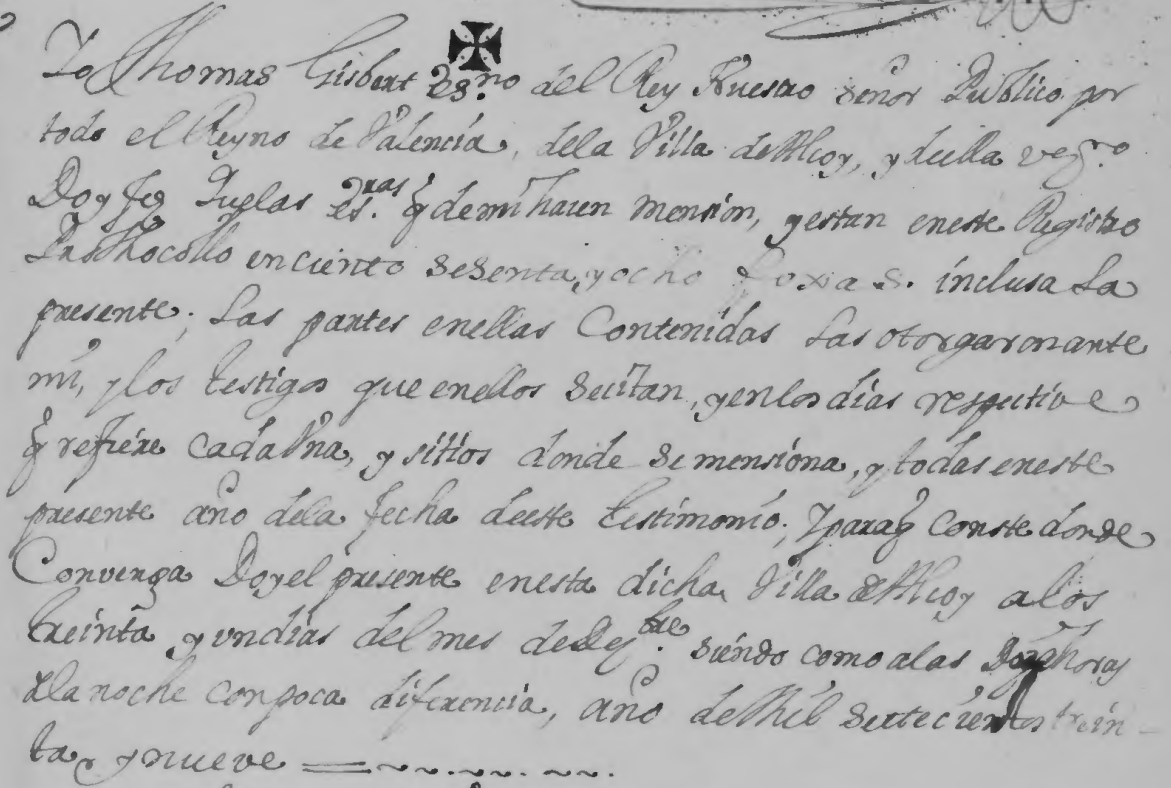 Yo Thomas Gisbert Es.no del Rey Nuestro señor Publico por
todo el Reyno de Valencia, dela Villa de Alcoy, y deella vez.no
Doy fee Quelas Es.ras q̃ demi hacen mension, yestan eneste Registro
Prothocollo enciento sesenta, yocho foxas. inclusa La
presente; Las partes enellas Contenidas Las otorgaronante
mi, ylos testigos que enellos secitan, yenlosdias respective
q̃ refiere cadaVna, y sitios donde semensiona, ytodas eneste
presente año dela fecha deeste testimonio; Yparaq̃ Conste donde
Convenga Doyel presente enesta dicha Villa de Alcoy alos
treinta yundias delmes deDez.bre siendo comoalas Doze horas
dlanoche conpoca diferencia, año deMil setecientos trein-
ta, ynueve